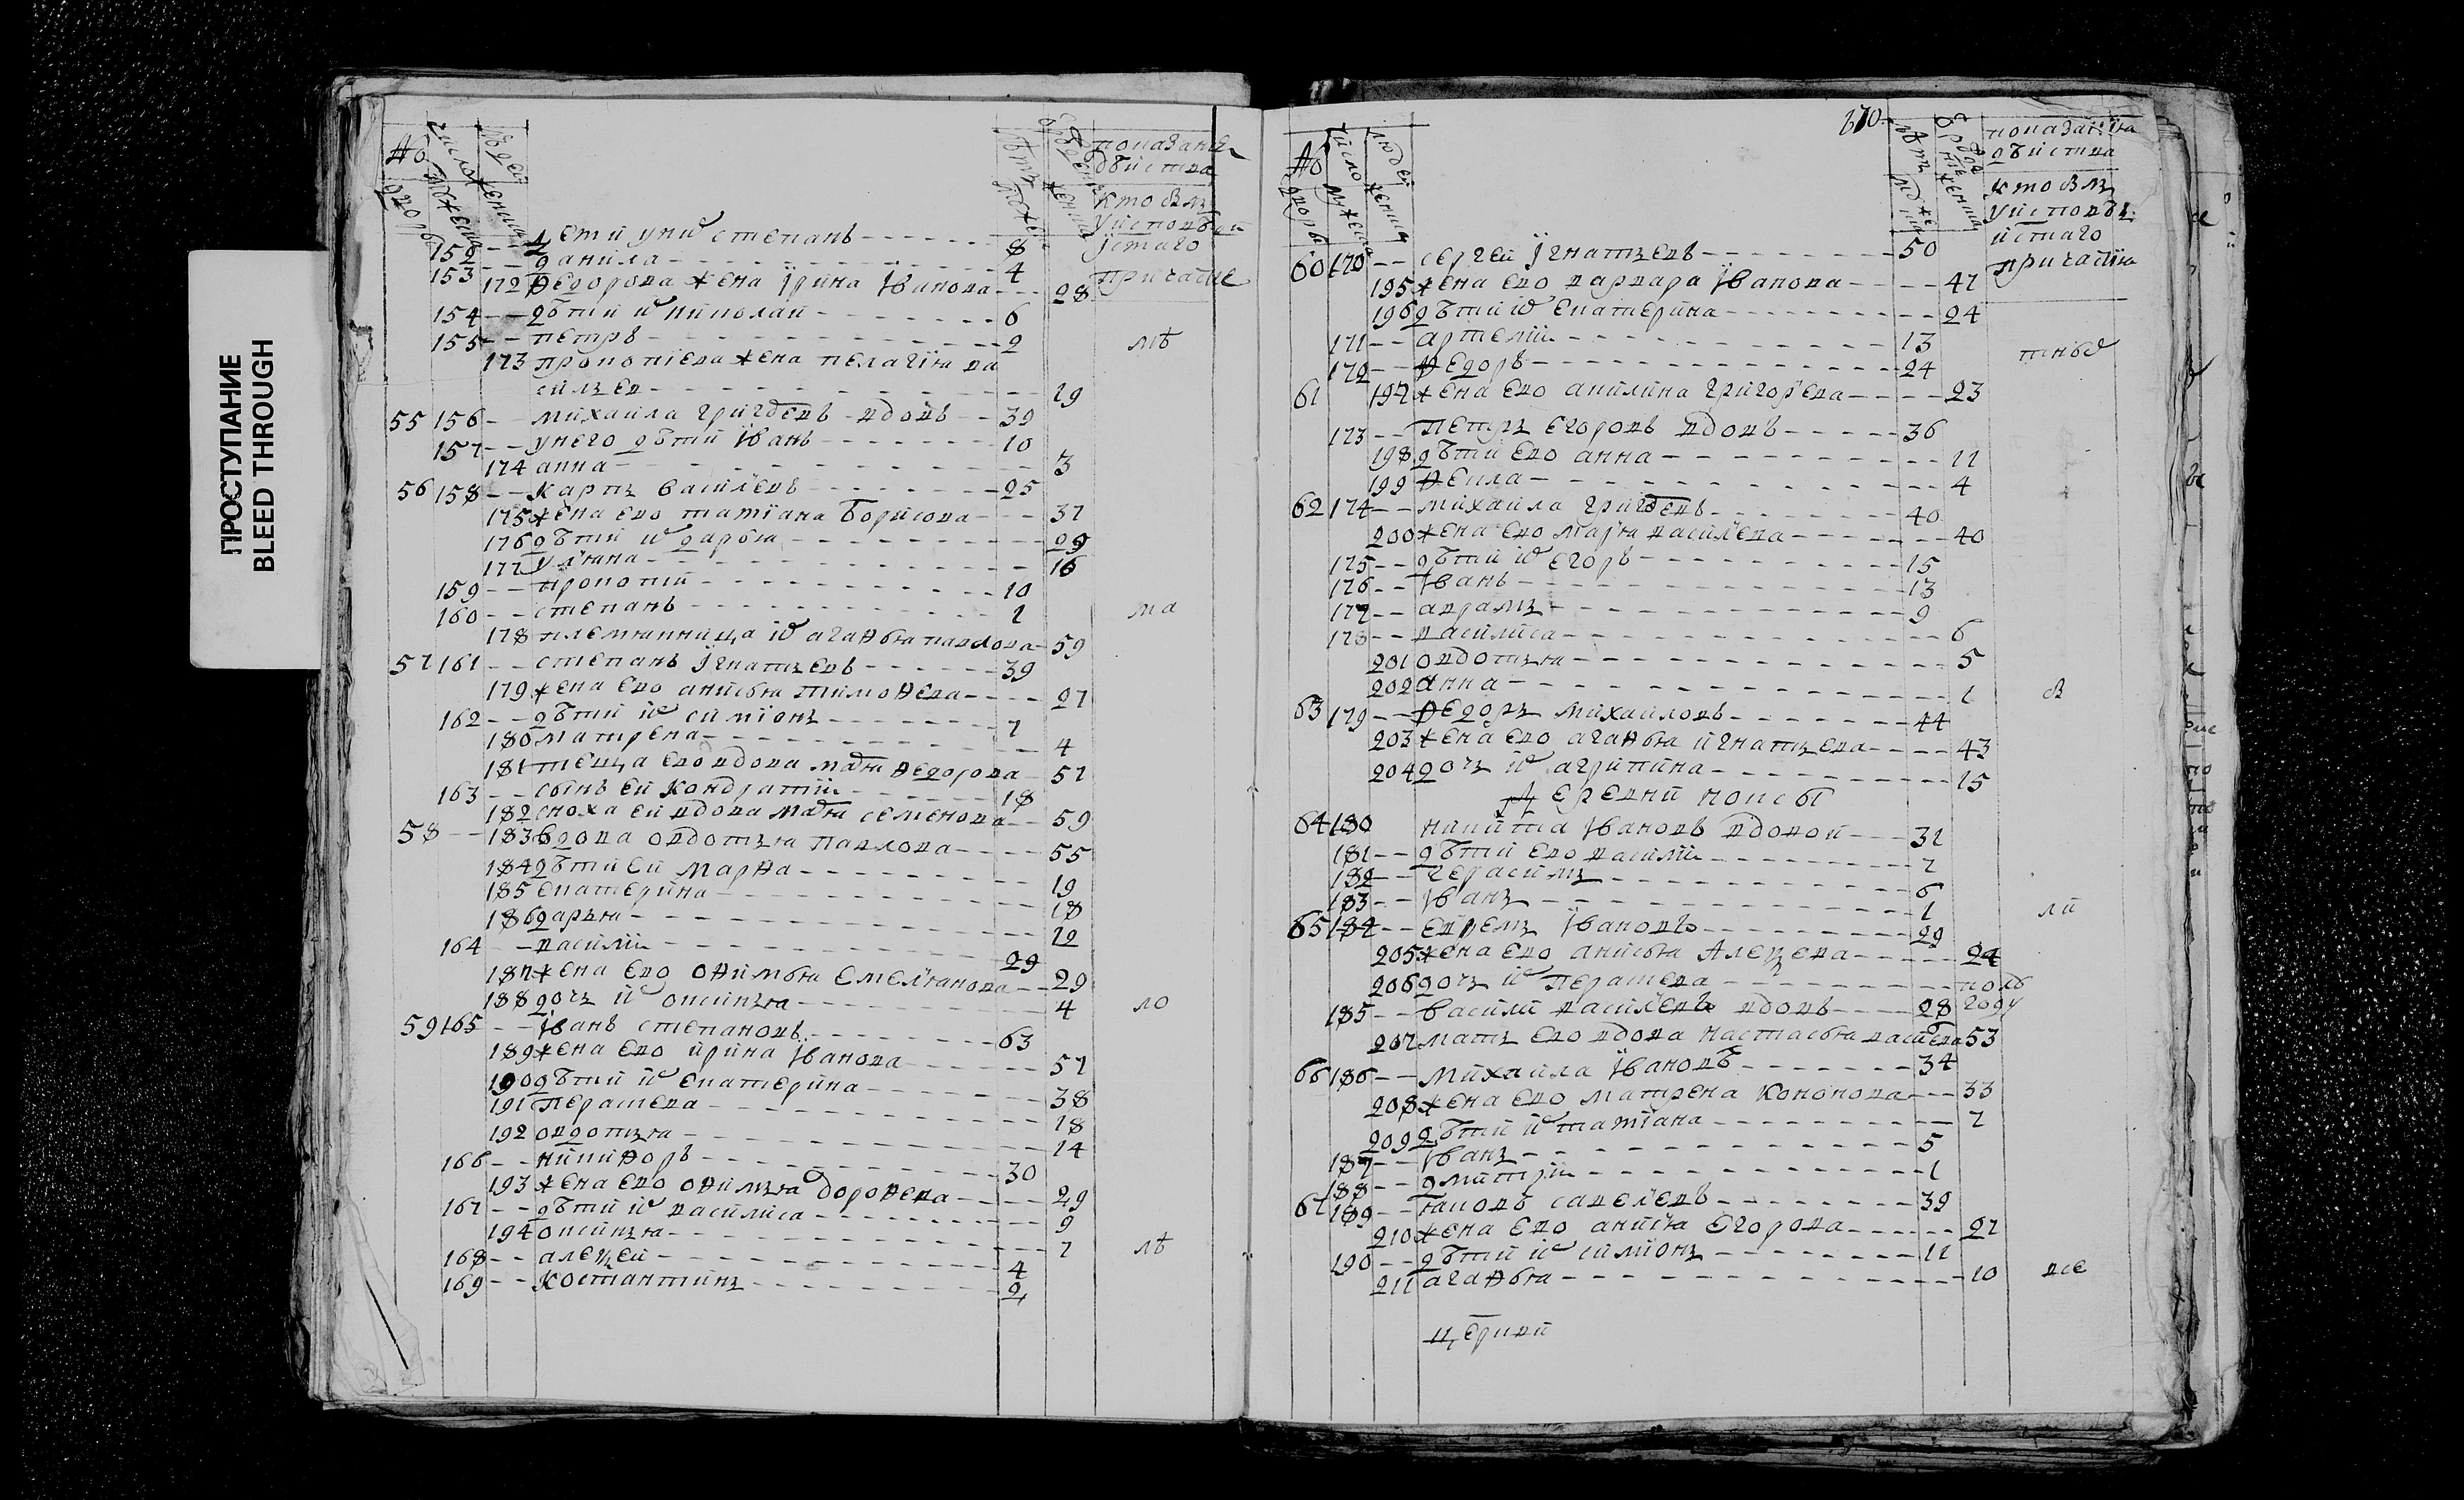 ПРОСТУПАНИЕ
BLEED THROUGH
№ двора
число
людей
мужеска
женска
лѣтъ
мужеска
женска
показание
дѣйства
кто былъ
у исповѣди
и стаго
причастие
152 -- дети у них степанъ 8
153 -- данила 4
172 федорова жена ирина Иванова 28
154 -- дѣти их николаи 6
155 -- петръ 2 лѣ
173 прокопиева жена пелагия ва
силъев 19
55 156 -- михаила григоревъ вдовъ 39
157 -- у него дѣти Иванъ 10
174 анна 3
56 158 -- Карпъ василевъ 25
175 жена ево татиана борисова 37
176 дѣти их дарья 29
177 улияна 16
159 -- прокопий 10
160 -- степанъ 1 ма
178 племянница их агафья павлова 59
57 161 -- степанъ игнатьевъ 39
179 жена ево анисья тимофева 27
162 -- дѣти их симионъ 7
180 матрена 4
181 теща ево вдова маря федорова 57
163 -- сынъ еи Кондратии 18
182 сноха еи вдова маря семенова 59
58 -- 183 вдова овдотья павлова 55
184 дѣти еи марфа 19
185 екатерина 18
186 дарья 12
164 -- василии 29
187 жена ево офимья емельянова 29
188 дочь их оксинья 4 ло
59 165 -- Иванъ степановъ 63
189 жена ево ирина Иванова 57
190 дѣти их екатерина 38
191 перасева 18
192 овдотья 14
166 -- никифоръ 30
193 жена ево офимья дорофева 29
167 -- дѣти их василиса 9
194 оксинья 7 лѣ
168 -- алеѯей 4
169 -- Костантинъ 2
670
№ двора
число
людей
мужеска
женска
лѣтъ
мужеска
женска
показания
дѣйства
кто былъ
у исповѣд
и стаго
причастия
60 170 -- сергеи игнатьевъ 50
195 жена ево варвара Иванова 47
196 дѣти их екатерина 24
171 -- артемии 13
172 -- федоръ 24
61 197 жена ево акилина григорева 23
173 -- петръ егоровъ вдовъ 36
198 дѣти ево анна 11
199 фекла 4
62 174 -- михаила григоевъ 40
200 жена ево маря василева 40
175 -- дѣти их егоръ 15
176 -- Иванъ 13
177 -- аврамъ 9
178 -- василиса 6
201 овдотья 5
202 анна 1 в
63 179 -- федоръ михаиловъ 44
203 жена ево агафья игнатьева 43
204 дочь их агрипина 15
64 180 никита Ивановъ вдовой 37
181 -- дѣти ево василии 7
182 -- герасимъ 6
183 -- Иванъ 1 ли
65 184 -- ефремъ Ивановъ 29
205 жена ево анисья Алеѯева 24
206 дочь их перасева полъ
году
185 -- Василии василевъ вдовъ 28
207 мать ево вдова настасья васиева 53
66 186 -- михаила Ивановъ 34
208 жена ево матрена Кононова 33
209 дѣти их татиана 7
187 -- Иванъ 5
188 -- дмитрии 1
67 189 -- яковъ савелевъ 39
210 жена ево анися егорова 27
190 -- дѣти их симионъ 11
211 агафья 10 все
церкви